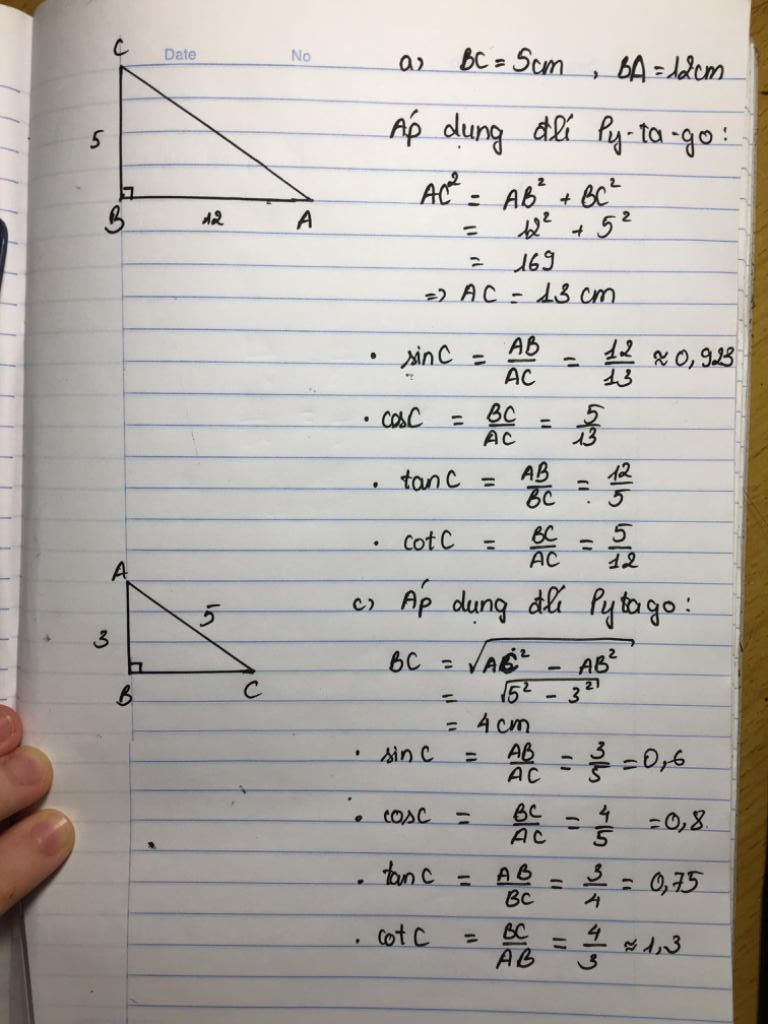 Date No
C
5
B
12
A
a) BC = 5cm , BA = 12cm
Áp dụng đlí Py-ta-go:
AC² = AB² + BC²
= 12² + 5²
= 169
=> AC = 13 cm
• sinC = AB/AC = 12/13 ≈ 0,923
• cosC = BC/AC = 5/13
• tanC = AB/BC = 12/5
• cotC = BC/AC = 5/12
A
3
5
B
C
c) Áp dụng đlí Pytago:
BC = √(AC² - AB²)
= √(5² - 3²)
= 4 cm
• sinC = AB/AC = 3/5 = 0,6
• cosC = BC/AC = 4/5 = 0,8
• tanC = AB/BC = 3/4 = 0,75
• cotC = BC/AB = 4/3 ≈ 1,3